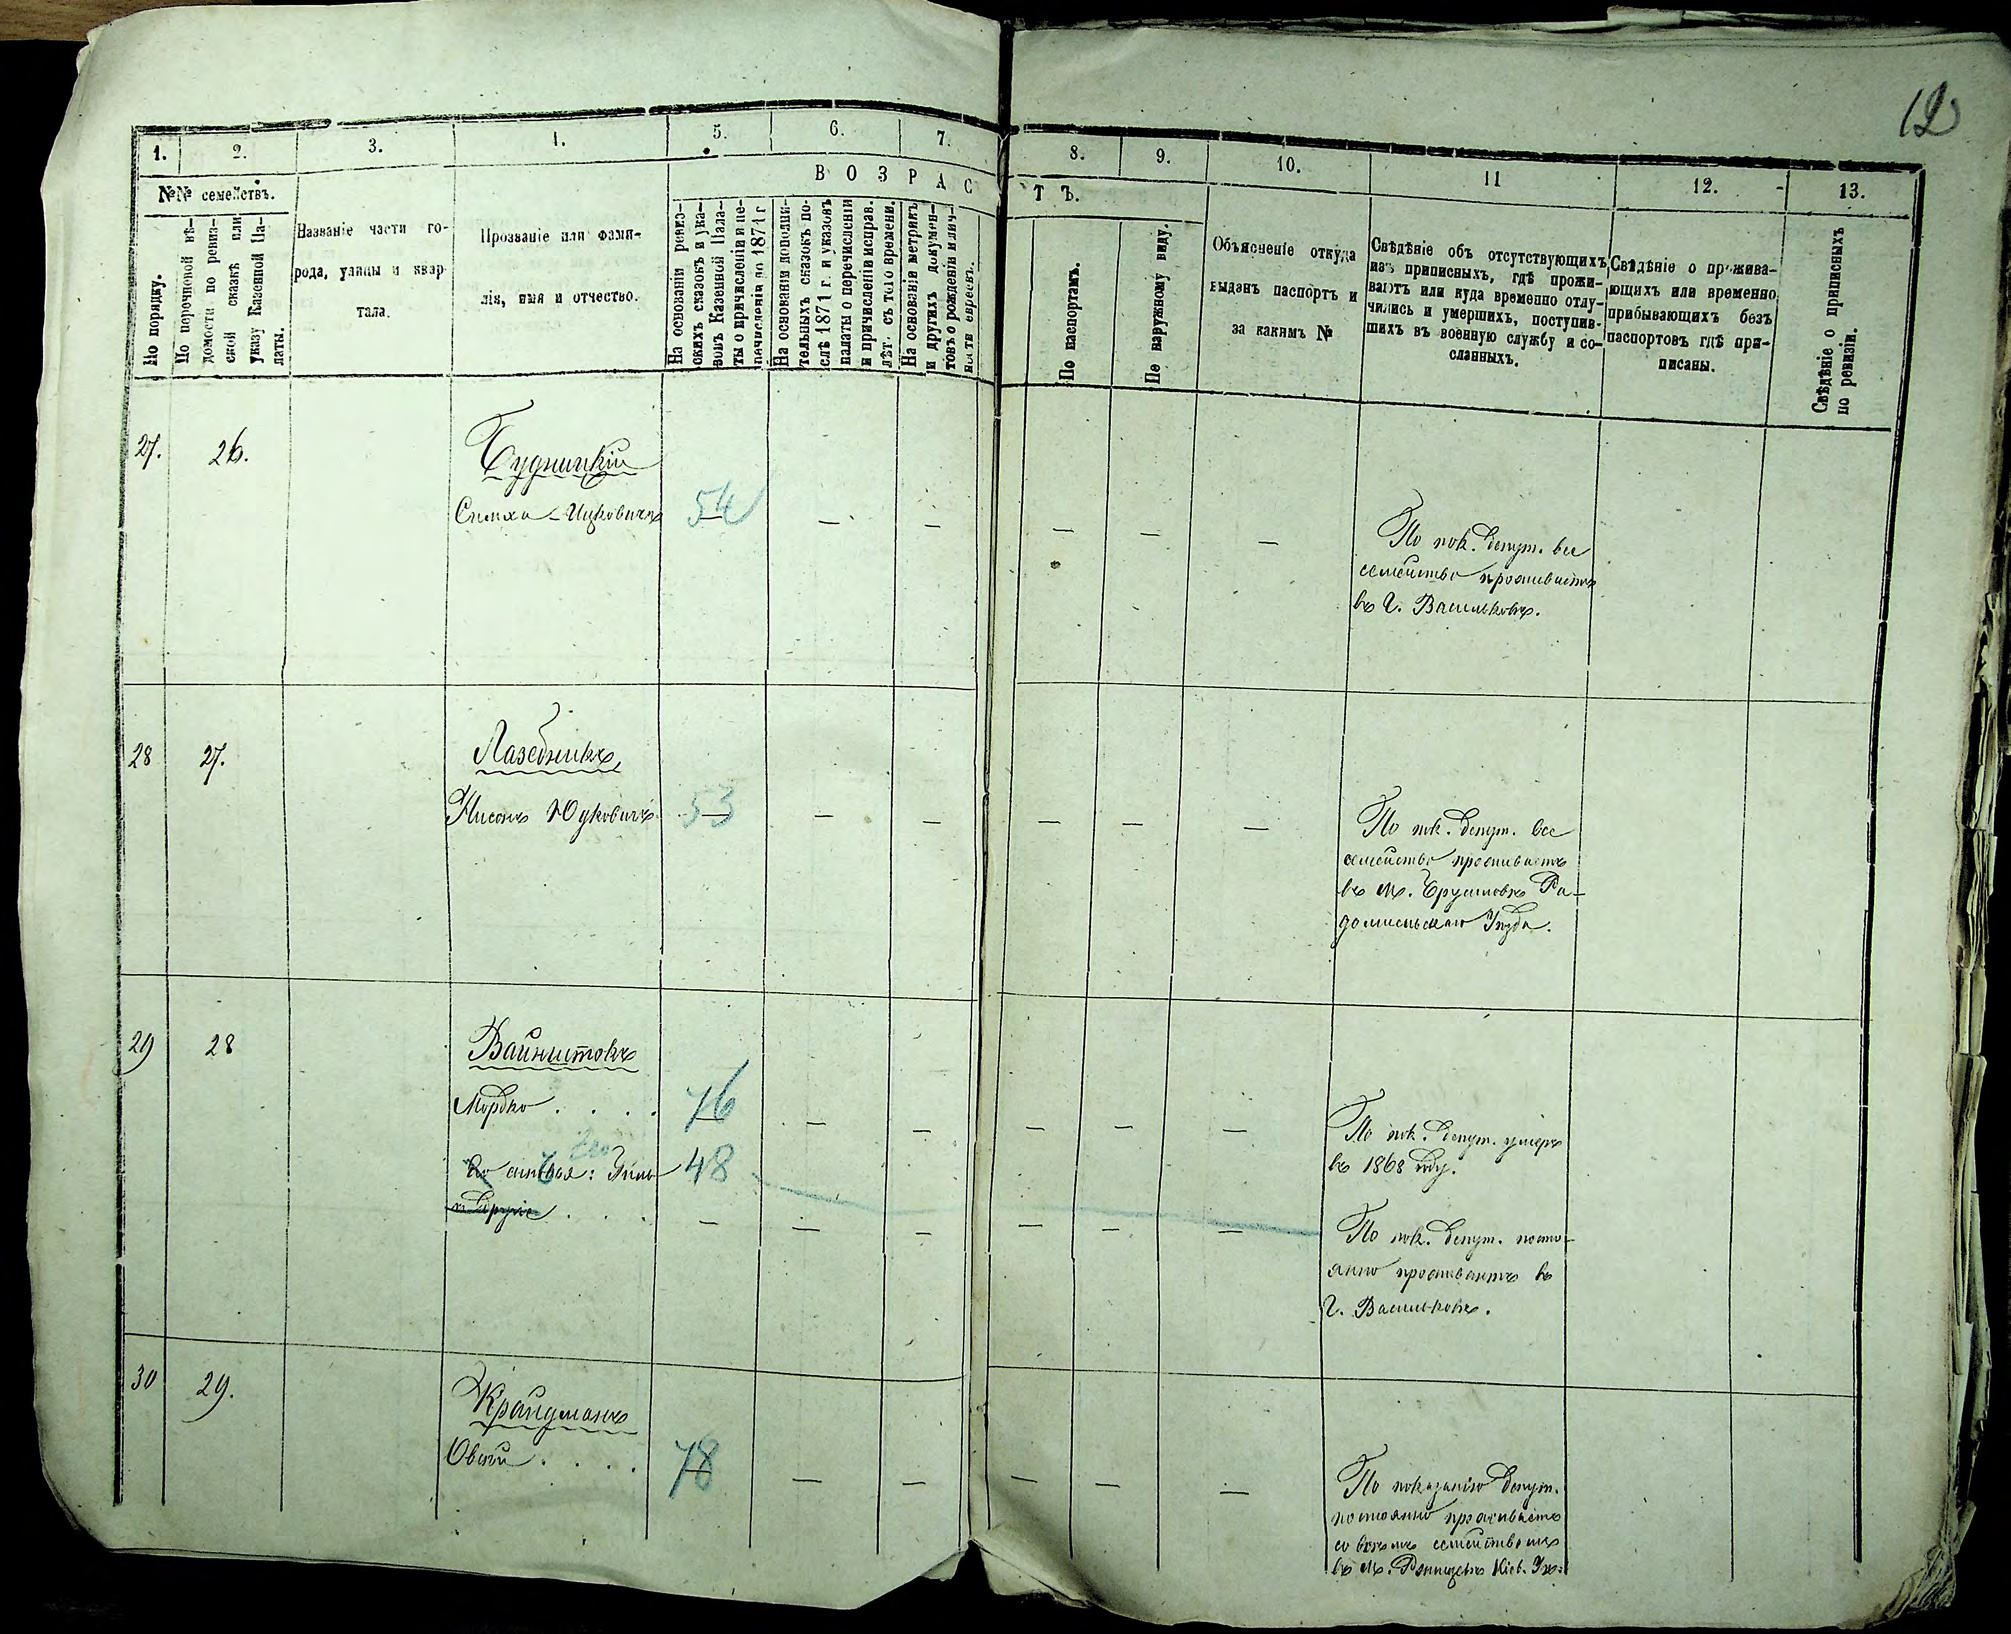 12
1. 2. 3. 4. 5. 6. 7. 8. 9. 10. 11 12. 13.
№№ семействъ.
По порядку.
По перечневой вѣ-
домости по ревиз-
ской сказкѣ или
указу Казенной Па-
латы.
Названіе части го-
рода, улицы и квар-
тала.
Прозваніе или фами-
лія, имя и отчество.
ВОЗРАСТЪ.
На основаніи ревиз-
скихъ сказокъ и ука-
зовъ Казенной Пала-
ты о причисленіи и пе-
речисленіи до 1871 г
На основаніи дополни-
тельныхъ сказокъ по-
слѣ 1871 г. и указовъ
палаты о перечисленіи
и причисленіи исправ.
лѣт. съ того времени.
На основаніи метрикъ
и другихъ докумен-
товъ о рожденіи и лич-
ности евреевъ.
По паспортамъ.
По наружному виду.
Объясненіе откуда
выданъ паспортъ и
за какимъ №
Свѣдѣніе объ отсутствующихъ
изъ приписныхъ, гдѣ прожи-
ваютъ или куда временно отлу-
чились и умершихъ, поступив-
шихъ въ военную службу и со-
сланныхъ.
Свѣдѣніе о прожива-
ющихъ или временно
прибывающихъ безъ
паспортовъ гдѣ при-
писаны.
Свѣдѣніе о приписныхъ
по ревизіи.
27. 26. Будницкій
Симха-Ицковичъ 54 — — — — —
По пок. депут. все
семейство проживаетъ
въ г. Васильковѣ.
28 27. Лазебникъ
Нисонъ Юдковичъ 53 — — — — —
По пок. депут. все
семейство проживаетъ
въ м. Брусиловѣ Ра-
домысльскаго Уѣзда.
29 28 Вайнштокъ
Мордко . . . . 76 — — — — —
По пок. депут. умеръ
въ 1868 году.
Его
Его сыновья: 48
и другіе . . . — — — — — —
По пок. депут. посто-
янно проживаютъ въ
г. Васильковѣ.
30 29. Крайдманъ
Овсей . . . . 78 — — — — —
По показанію депут.
постоянно проживаетъ
со всѣмъ семействомъ
въ м. Ржищевѣ Кіев. Уѣз.